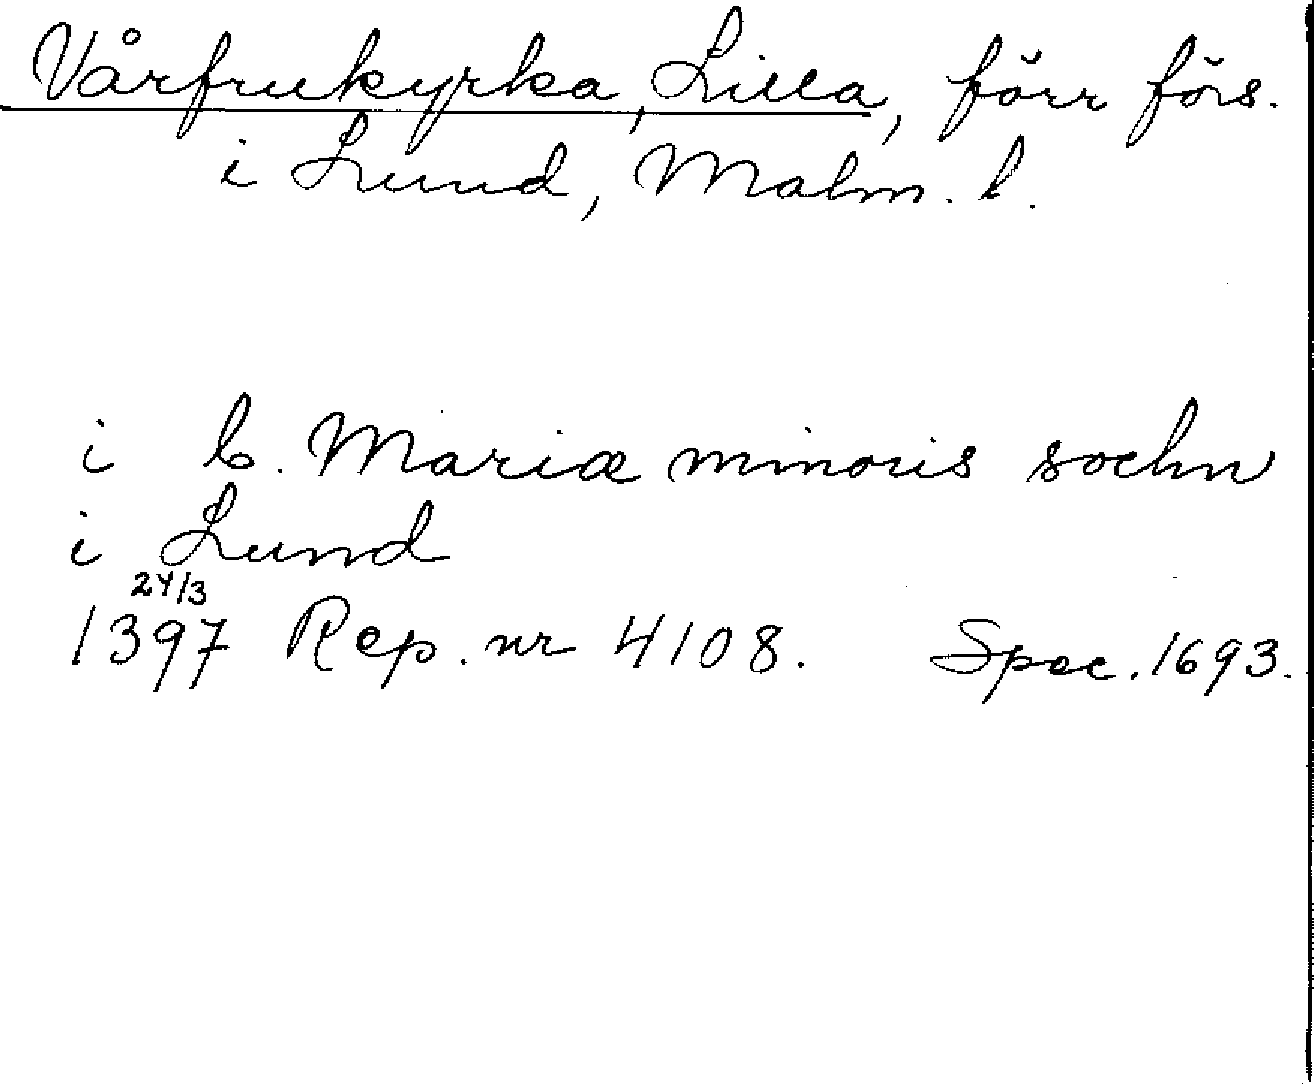 Vårfrukyrka, Lilla, förr förs.
i Lund, Malm. l.
i b. Mariæ minoris soehn
i Lund
24/3
1397 Rep. nr 4108. Spec. 1693.